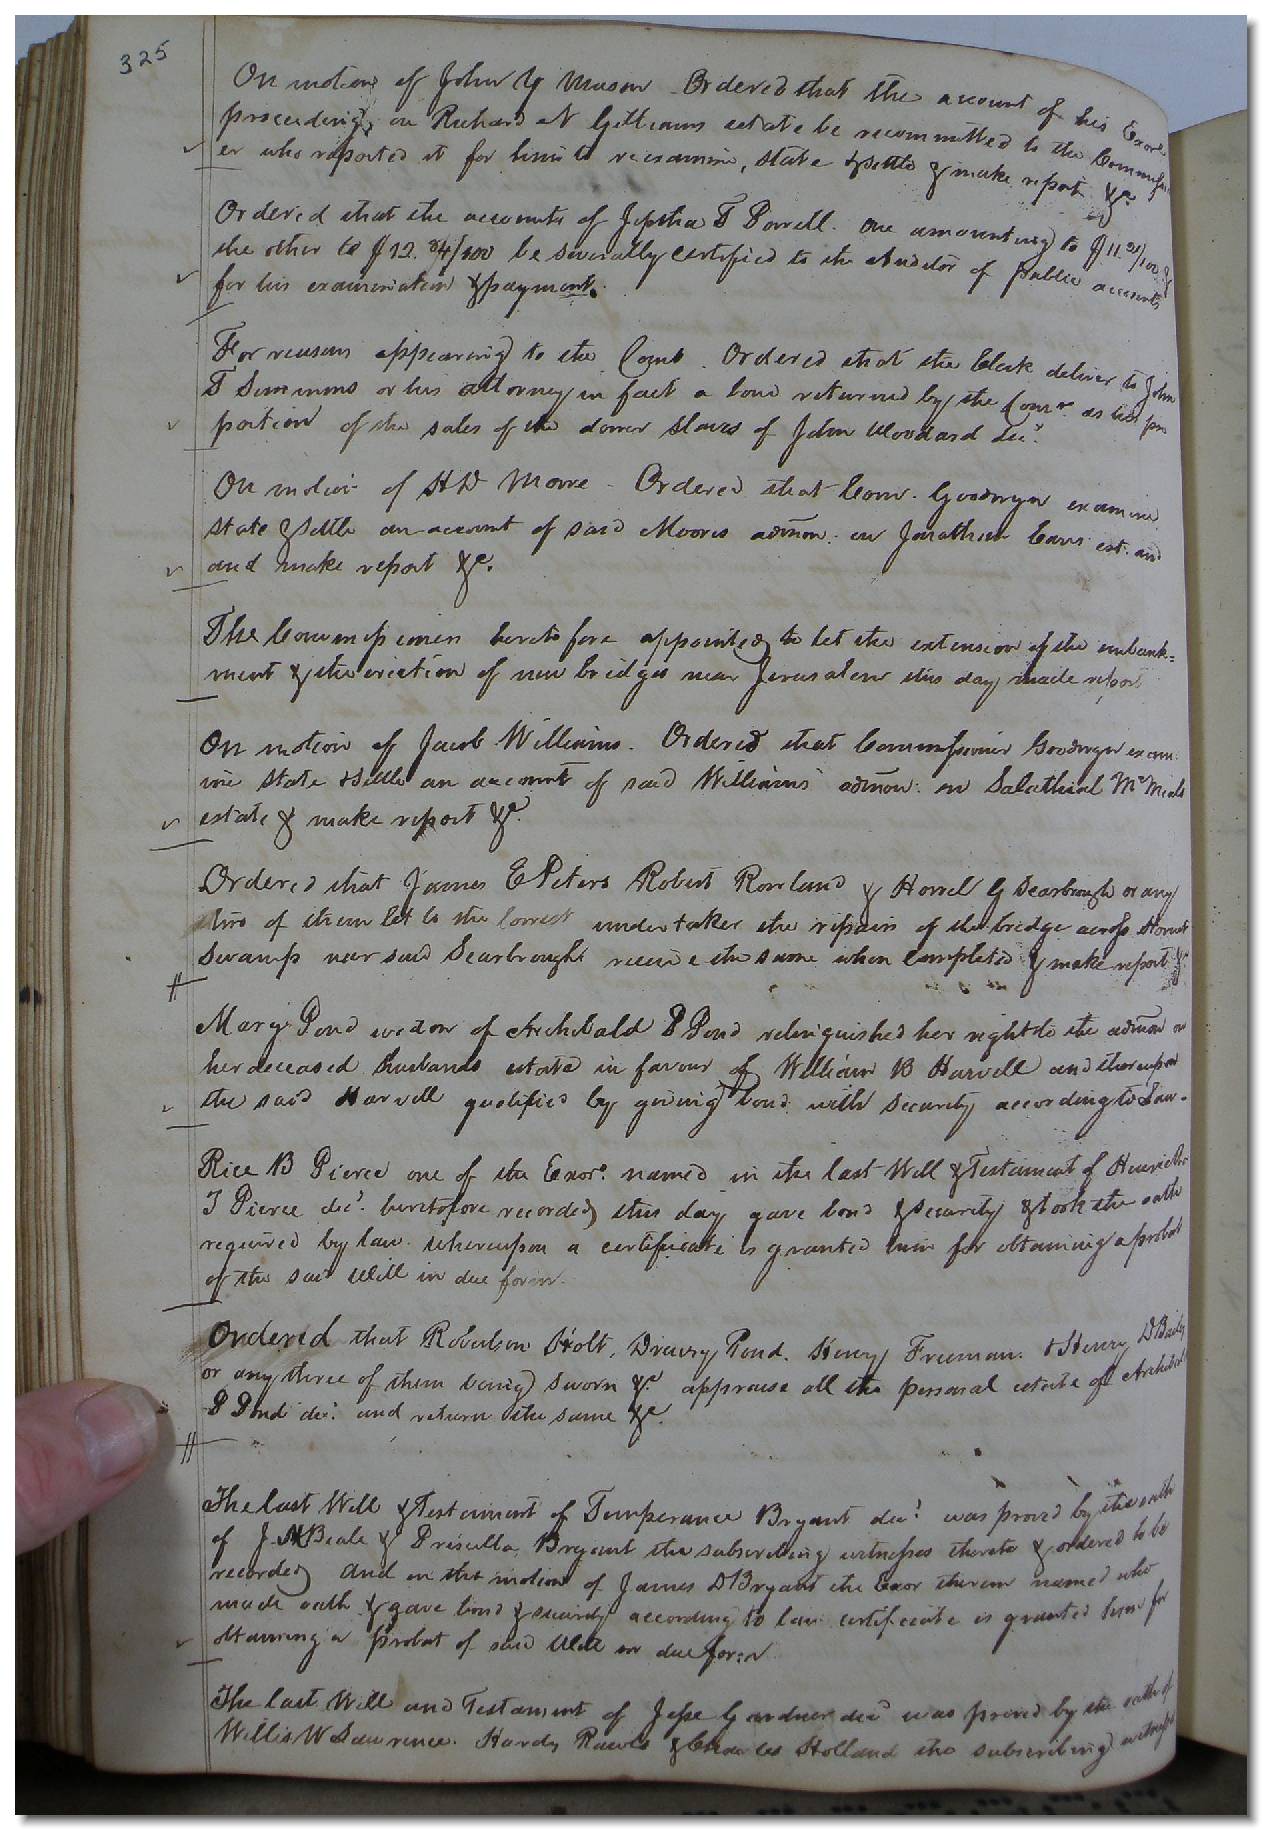 325
On motion of John Y Mason Ordered that the account of his Exors
proceedings on Richard A Gilliams estate be recommitted to the Commission
er who reported it for him to reexamine, state & settle & make report &c
Ordered that the accounts of Jeptha T Powell. one amounting to $11
the other to $12. 84/100 be severally certified to the Auditor of public accounts
for his examination & payment.
For reasons appearing to the Court. Ordered that the Clerk deliver to John
T Simmons or his attorney in fact a bond returned by the Comr. as his pro
portion of the sales of the dower slaves of John Woodard decd.
On motion of H D Moore. Ordered that Comr. Goodwyn examine
state & settle an account of said Moores admon. on Jonathan est. and
and make report &c.
The Commissioners heretofore appointed to let the extension of the embank=
ment & the erection of new bridges near Jerusalem this day made report
On motion of Jacob Williams. Ordered that Commissioner Goodwyn exam
ine state & settle an account of said Williams admon. on Salathial
estate & make report &c.
Ordered that James E Peters Robert Rowland & Howel G Scarbrough or any
two of them let to the lowest undertaker the repairs of the bridge across
Swamp near said Scarbrough receive the same when completed & make report &c
Mary Pond widow of Archibald B Pond relinquished her right to the admon on
her deceased husbands estate in favour of William B Harvell and thereupon
the said Harvell qualified by giving bond with security according to Law.
Rice B Pierce one of the Exors. named in the last Will & Testament of Henrietta
T Pierce decd. heretofore recorded this day gave bond & security & took the oath
required by law whereupon a certificate is granted him for obtaining a probat
of the said Will in due form.
Ordered that Robertson Holt, Drewry Pond. Henry Freeman. & Henry D Baily
or any three of them being sworn &c. appraise all the personal estate of Archibald
B Pond decd. and return the same &c.
The last Will & Testament of Temperance Bryant decd. was proved by the oath
of J. Beale & Priscilla Bryant the subscribing witnesses thereto & ordered to be
recorded And on the motion of James D Bryant the Exor therein named who
made oath & gave bond & security according to law certificate is granted him for
obtaining a probat of said Will in due form
The last Will and Testament of Jesse Gardner decd was proved by the oath of
Willis W Lawrence. Hardy Rawls & Charles Holland the subscribing witnesses